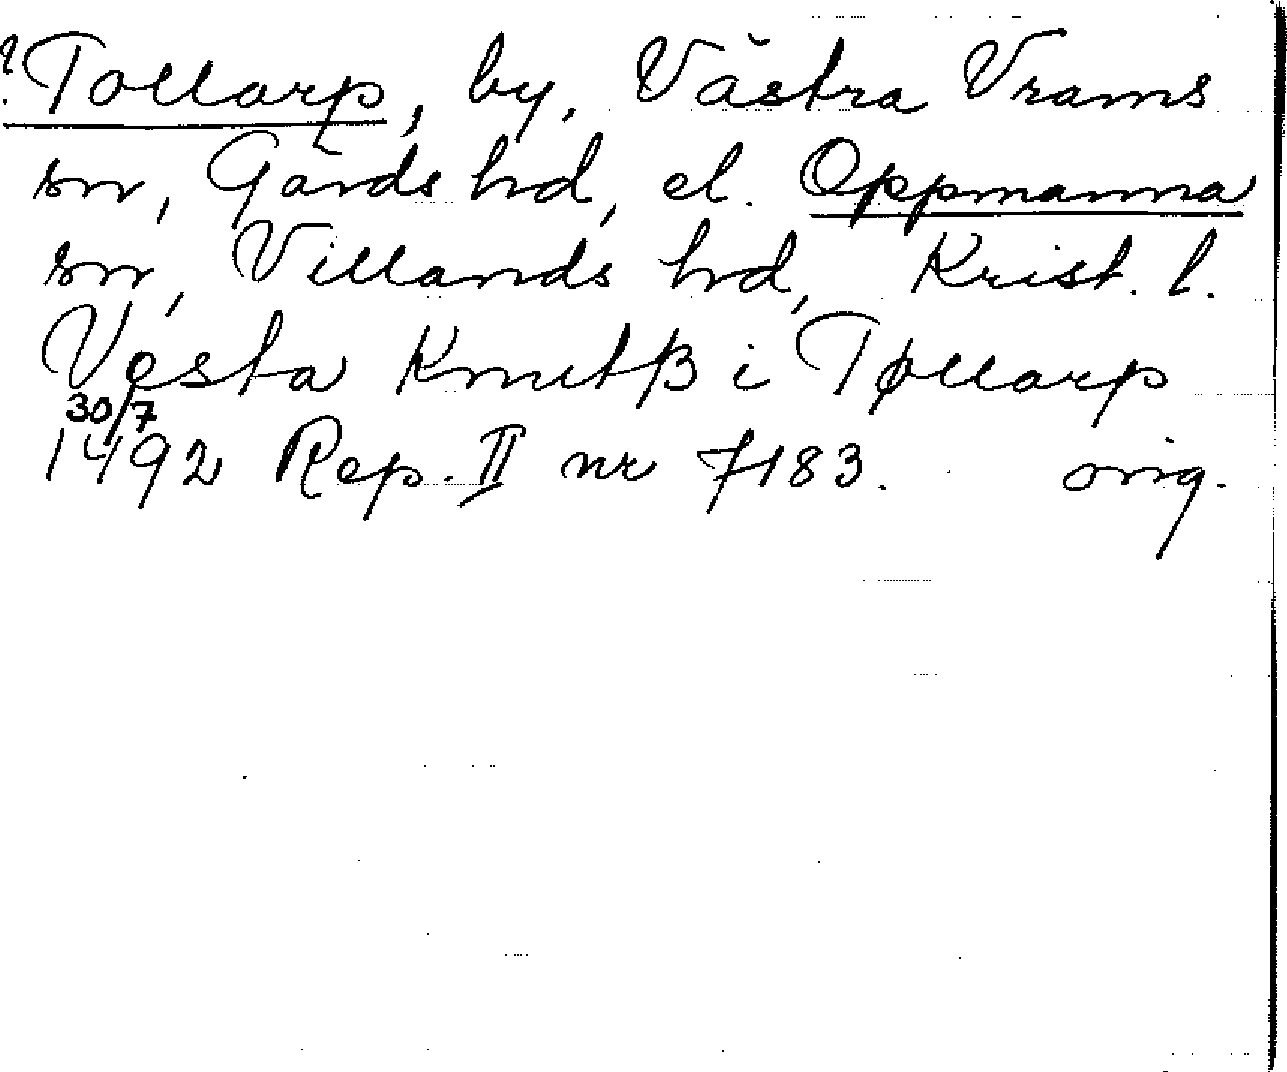 ? Tollarp, by, Västra Vrams
sn, Gärds hd, el. Oppmanna
sn, Villands hd, Krist. l.
Vesta Knutß i Tøllarp
30/7
1492 Rep. II nr 7183. orig.